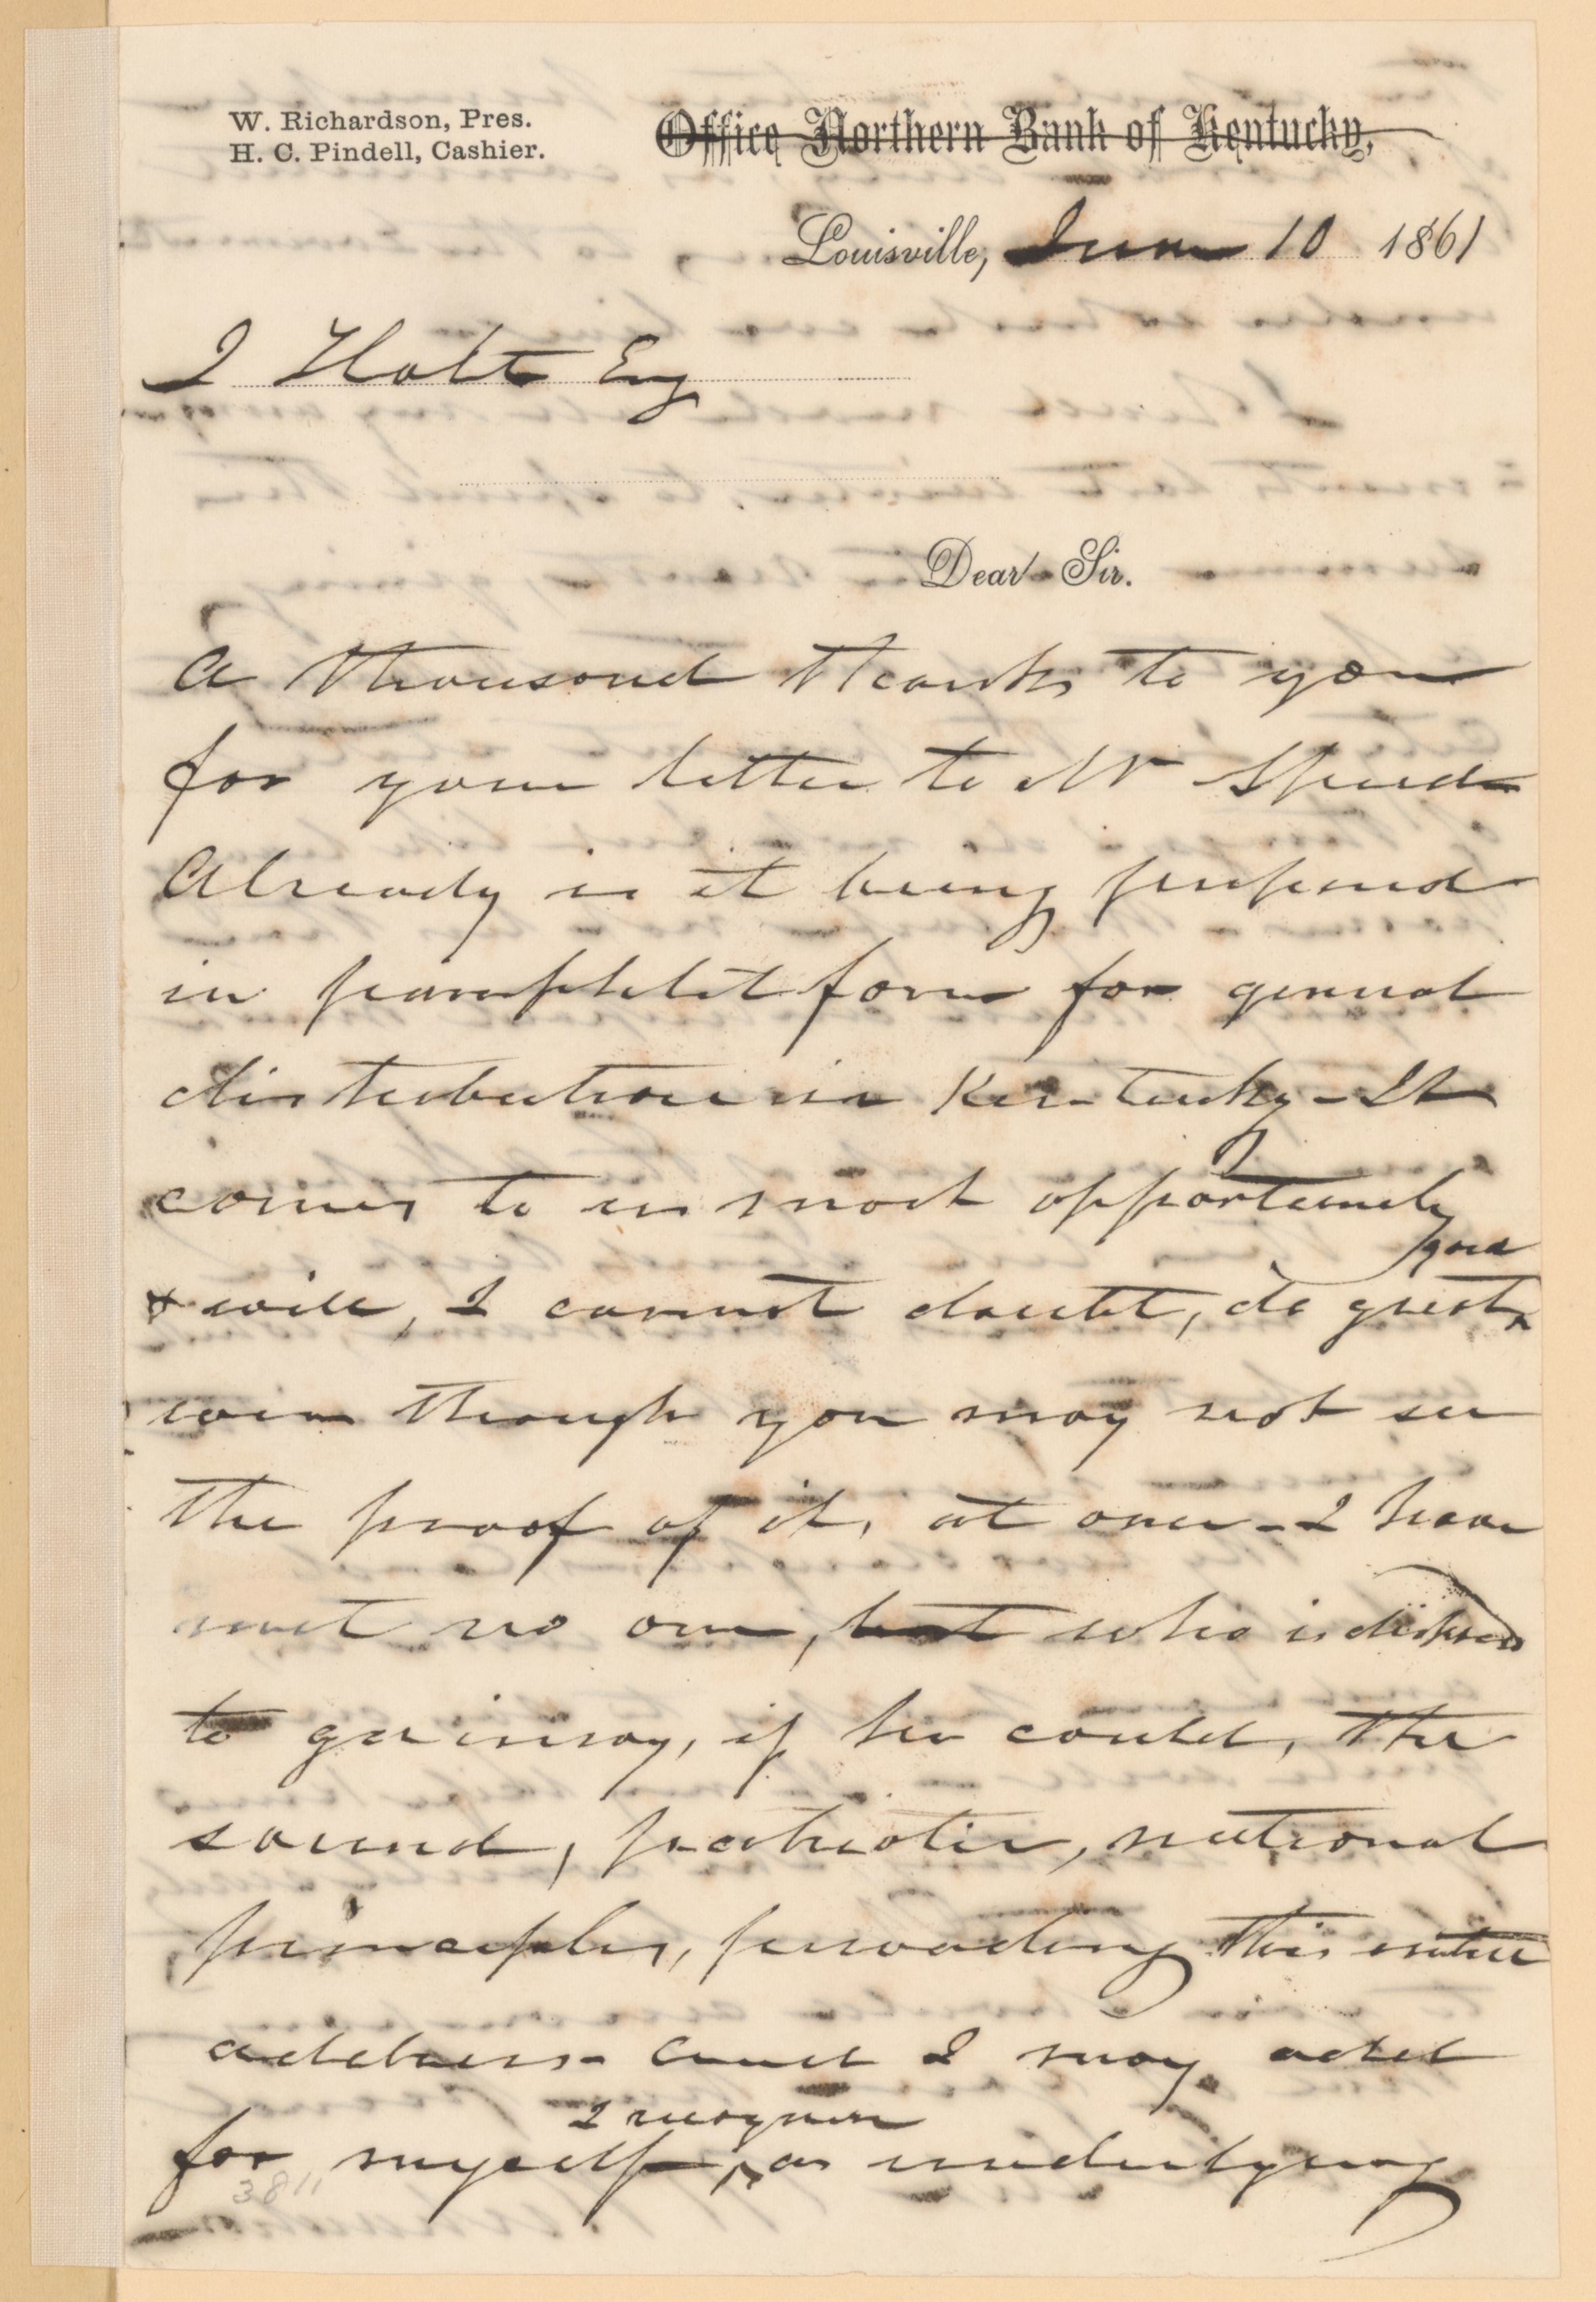 W. Richardson, Pres.
H. C. Pindell, Cashier.
Office Northern Bank of Kentucky,
Louisville, June 10 1861
J Holt Esq
Dear Sir.
A thousand thanks to you
for your letter to Mr Speed
Already is it being prepared
in pamphlet form for general
distribution in Kentucky - It
comes to us most opportunely
good
& will, I cannot doubt, do great
even though you may not see
the proof of it, at once - I have
met no one, but who is disposed
to gainsay, if he could, the
sound, patriotic, national
principles, pervading this entire
address - And I may add
I recognise
for myself, as underlying
3811